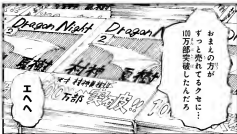 おまえの方が
ずっと売れてるクセに…
100万部突破したんだろ
エヘヘ
Dragon Night
2
Dragon Night
2
夏樹
村村
夏樹
万部